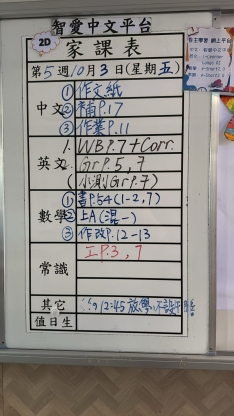 智愛中文平台
2D 家課表
第5週10月3日(星期五)
中文 ①作文紙
②補P.17
③作業P.11
英文 1. WB P.7+Corr.
2. Gr P.5, 7
(小測Gr P.7)
數學 ①書P.54(1-2,7)
②上A(混一)
③作改P.12-13
常識 工P.3, 7
其它 12:45放學,不設午膳
值日生